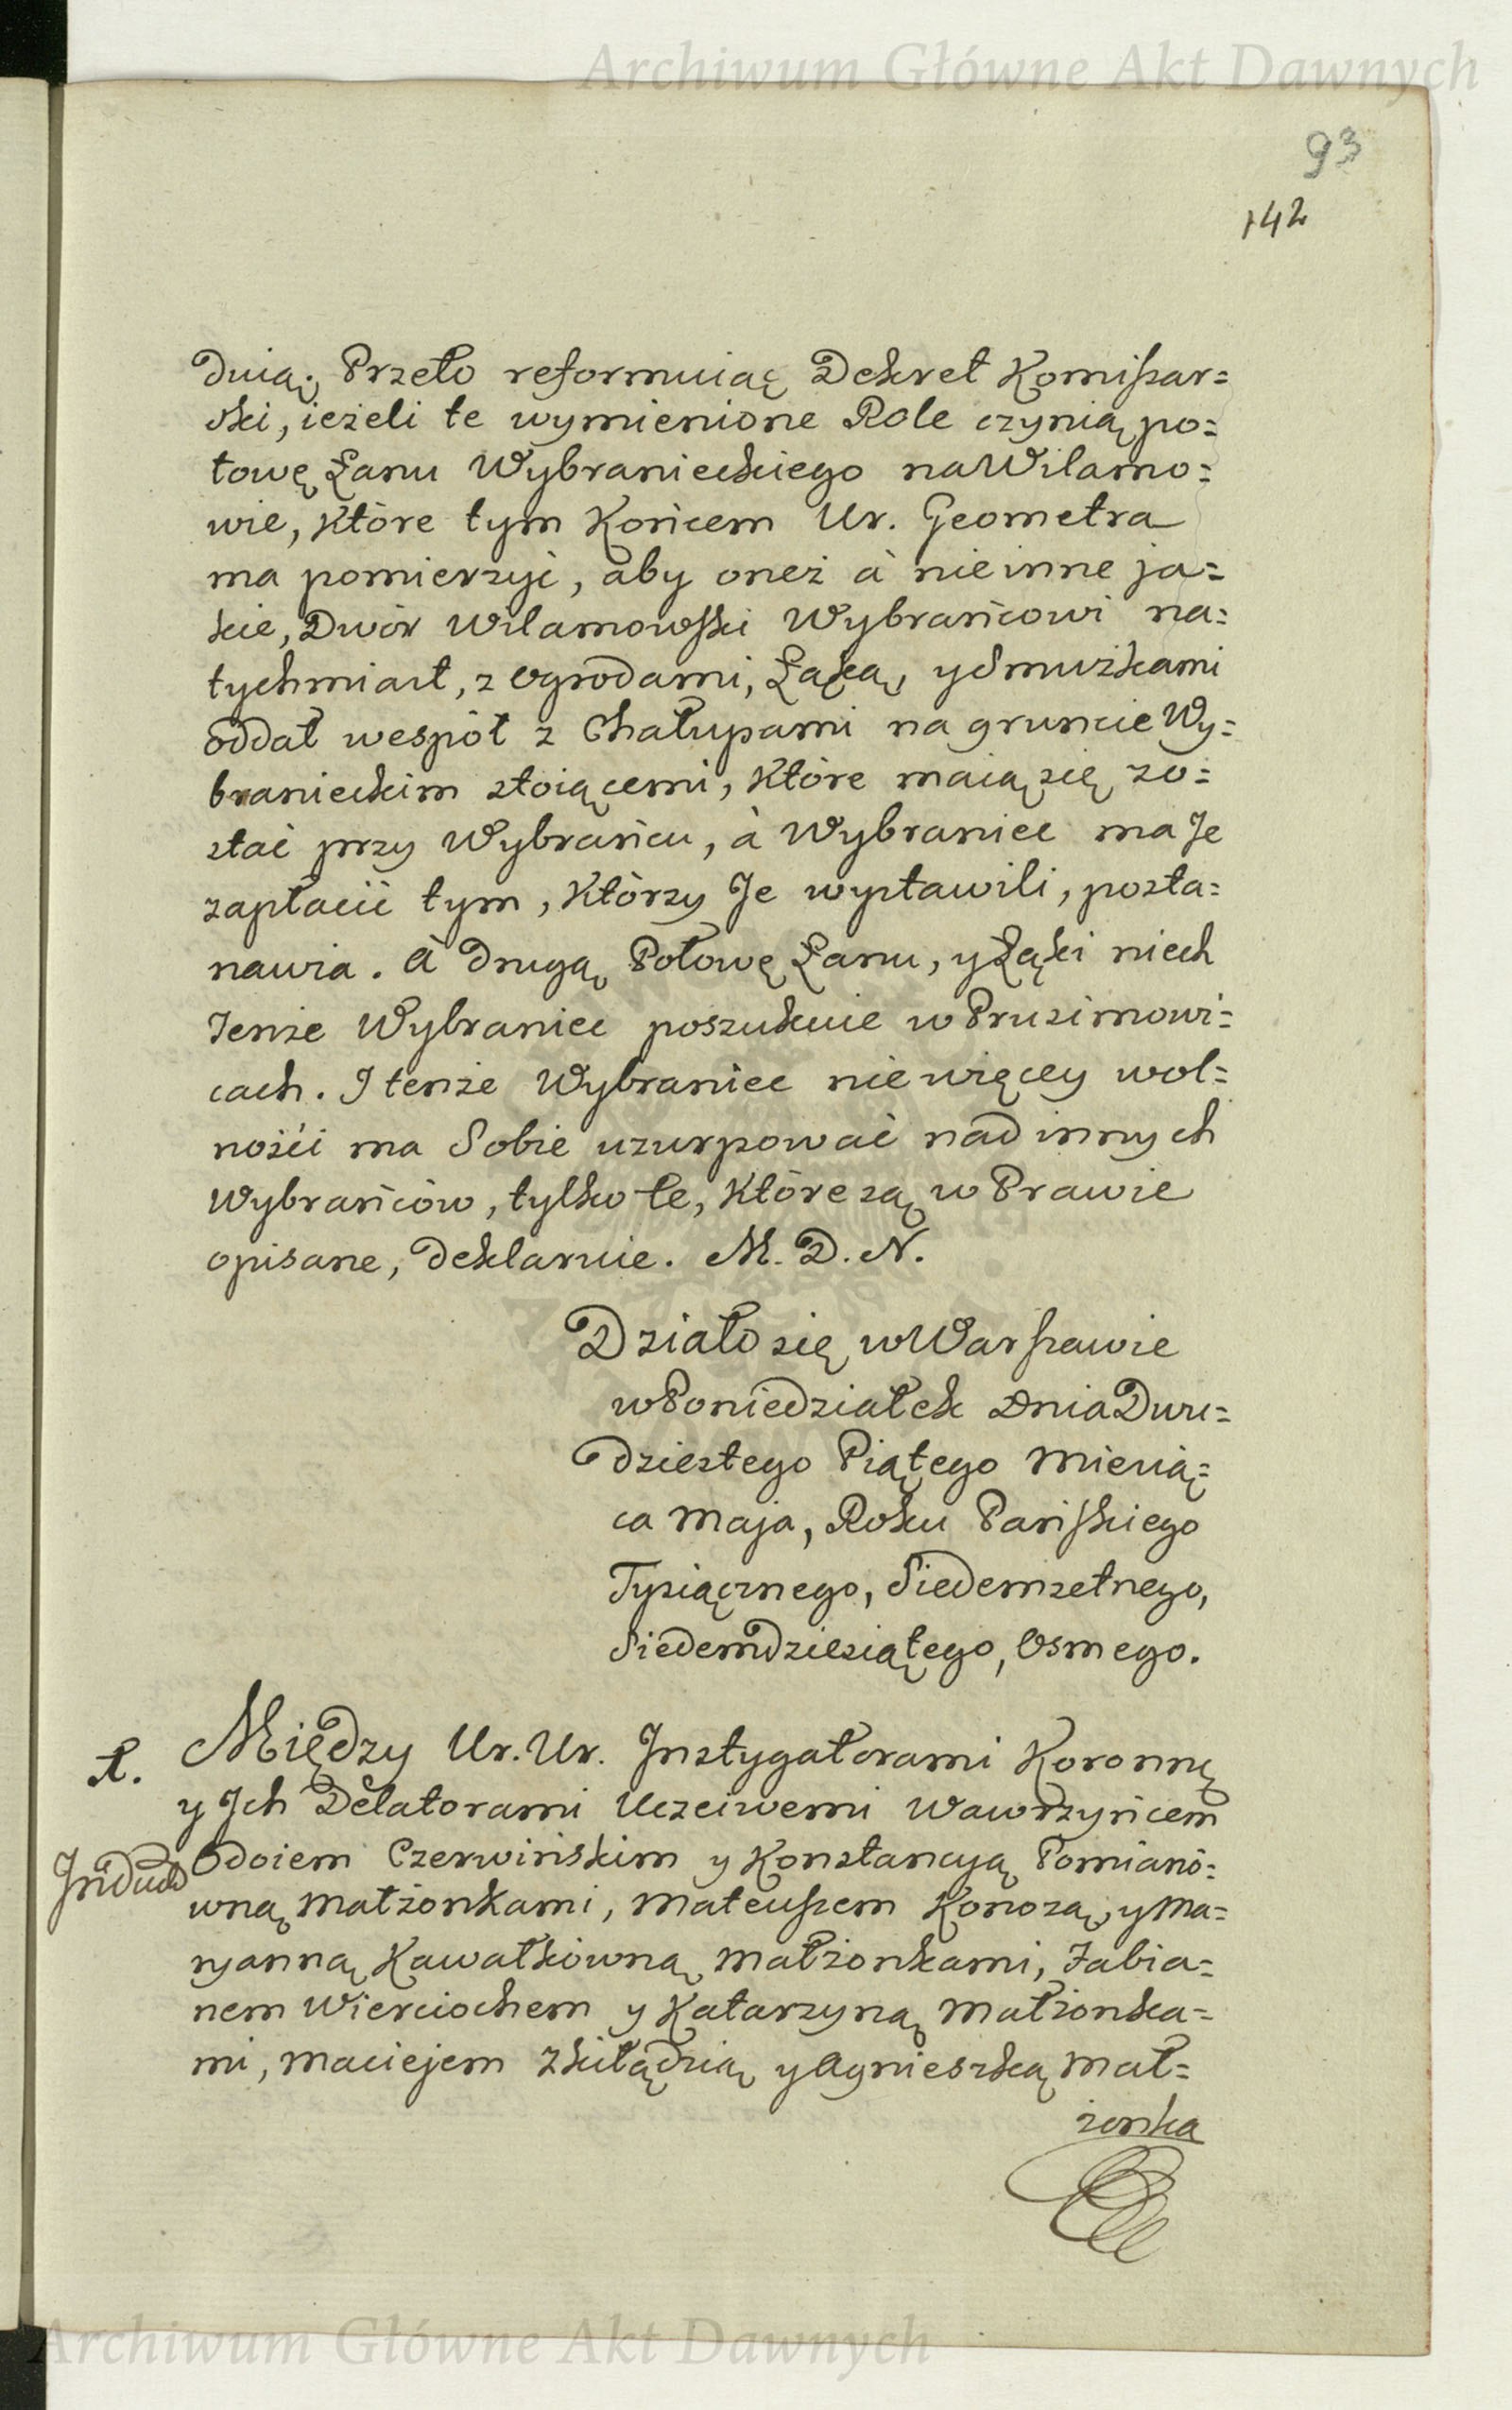 Archiwum Główne Akt Dawnych
93
142
dnią; Przeto reformuiąc Dekret Komiſsar=
ski, ieżeli te wymienione Role czynią po=
łowę Łanu Wybranieckiego na Wilamo=
wie, które tym Końcem Ur. Geometra
ma pomierzyć, aby oneż à nie inne ja=
kie, Dwór Wilamowſki Wybrańcowi na=
tychmiast, z Ogrodami, Łąką, y Smużkami
oddał wespół z Chałupami na gruncie Wy=
branieckim stoiącemi, które maią się zo=
stać przy Wybrańcu, à Wybraniec ma Je
zapłacić tym, którzy Je wystawili, posta=
nawia. à drugą Połowę Łanu, y Łąki niech
Tenże Wybraniec poszukuie w Prusimowi=
cach. I tenże Wybraniec nie więcey wol=
ności ma Sobie uzurpować nad innych
Wybrańców, tylko te, które są w Prawie
opisane, deklaruie. M. D. N.
Działo się w Warſzawie
w Poniedziałek Dnia Dwu=
dziestego Piątego Miesią=
ca Maja, Roku Pańſkiego
Tysiącznego, Siedemsetnego,
Siedemdziesiątego, Osmego.
Między Ur. Ur. Instygatorami Koronnę
y Ich Delatorami Uczciwemi Wawrzyńcem
Odoiem Czerwińskim y Konstancyą Pomianó=
wną Małżonkami, Mateuſzem Konozą, y Ma=
ryanną Kawałkówną Małżonkami, Fabia=
nem Wierciochem y Katarzyną Małżonka=
mi, Maciejem Zkilądzią y Agnieszką Mał=
żonka
Archiwum Główne Akt Dawnych